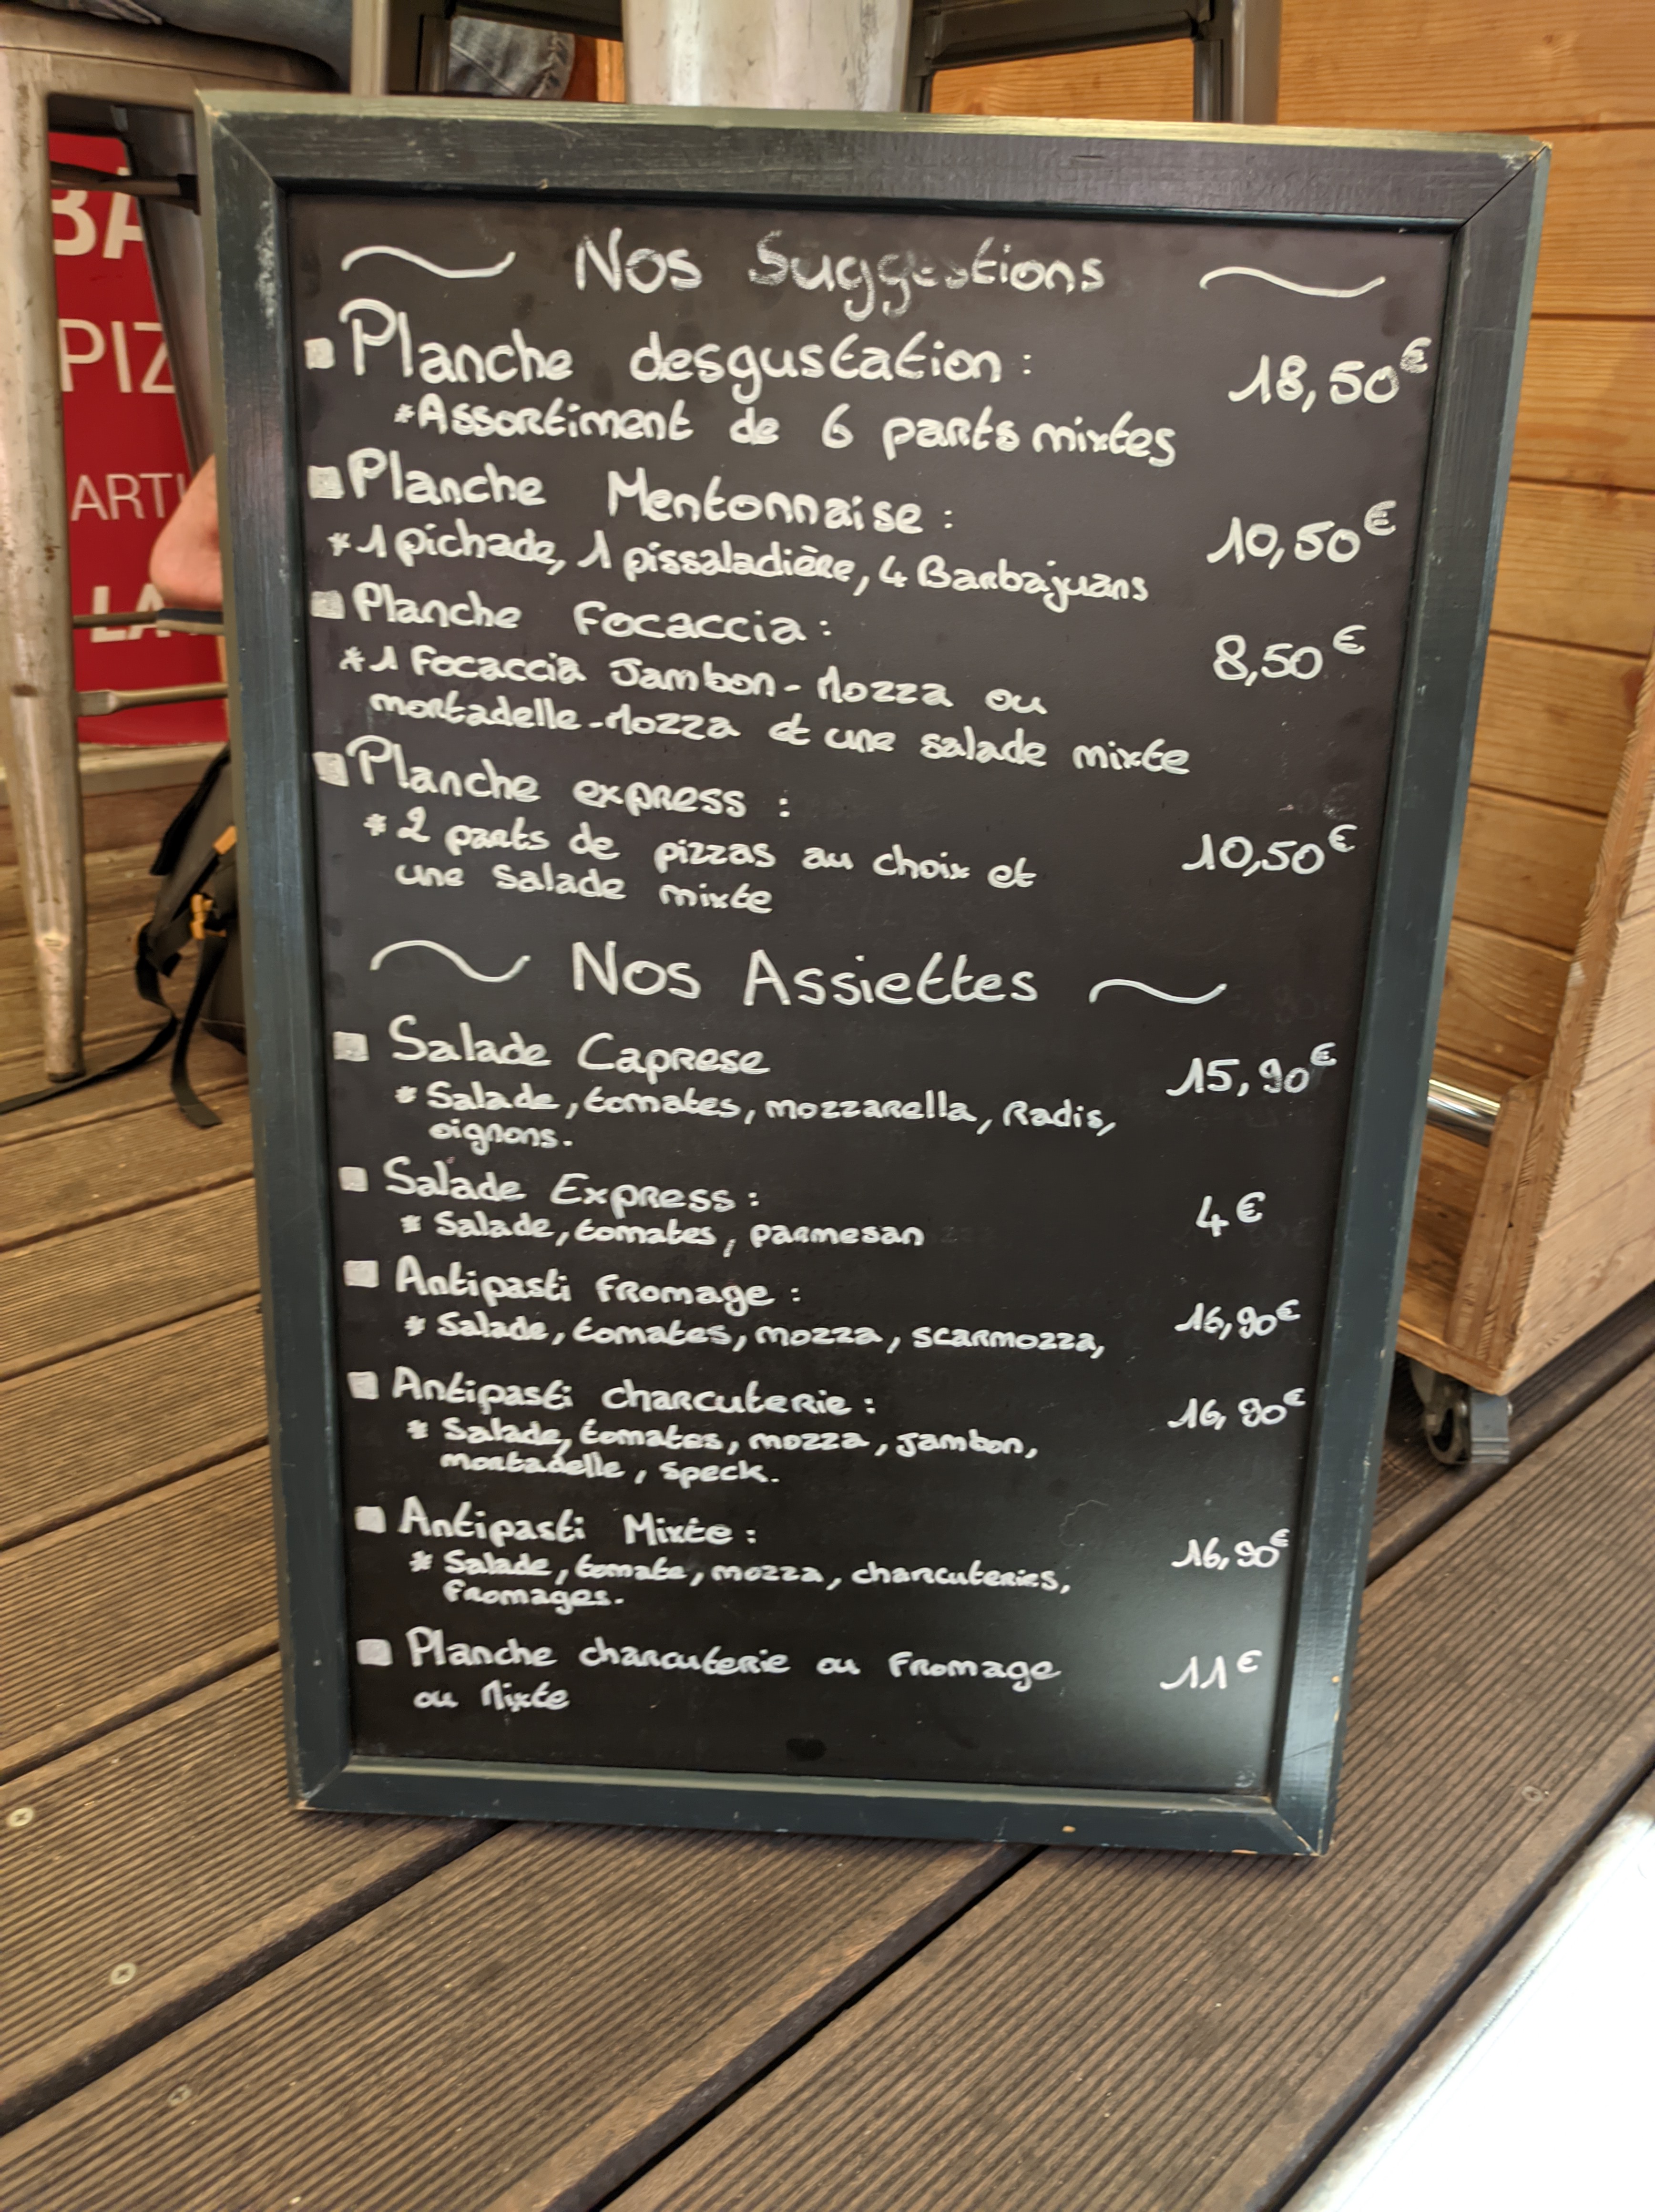 BA
PIZ
ARTI
LA
Nos Suggestions
Planche desgustation : 18,50€
*Assortiment de 6 parts mixtes
Planche Mentonnaise : 10,50€
*1 pichade, 1 pissaladière, 4 Barbajuans
Planche Focaccia : 8,50€
*1 Focaccia Jambon-Mozza ou
mortadelle-Mozza et une salade mixte
Planche express : 10,50€
*2 parts de pizzas au choix et
une salade mixte
Nos Assiettes
Salade Caprese 15,90€
* Salade, tomates, mozzarella, Radis,
oignons.
Salade Express : 4€
* Salade, tomates, parmesan
Antipasti Fromage : 16,90€
* Salade, tomates, mozza, scarmozza,
Antipasti charcuterie : 16,90€
* Salade, tomates, mozza, jambon,
mortadelle, speck.
Antipasti Mixte : 16,90€
* Salade, tomate, mozza, charcuteries,
Fromages.
Planche charcuterie ou Fromage 11€
ou Mixte